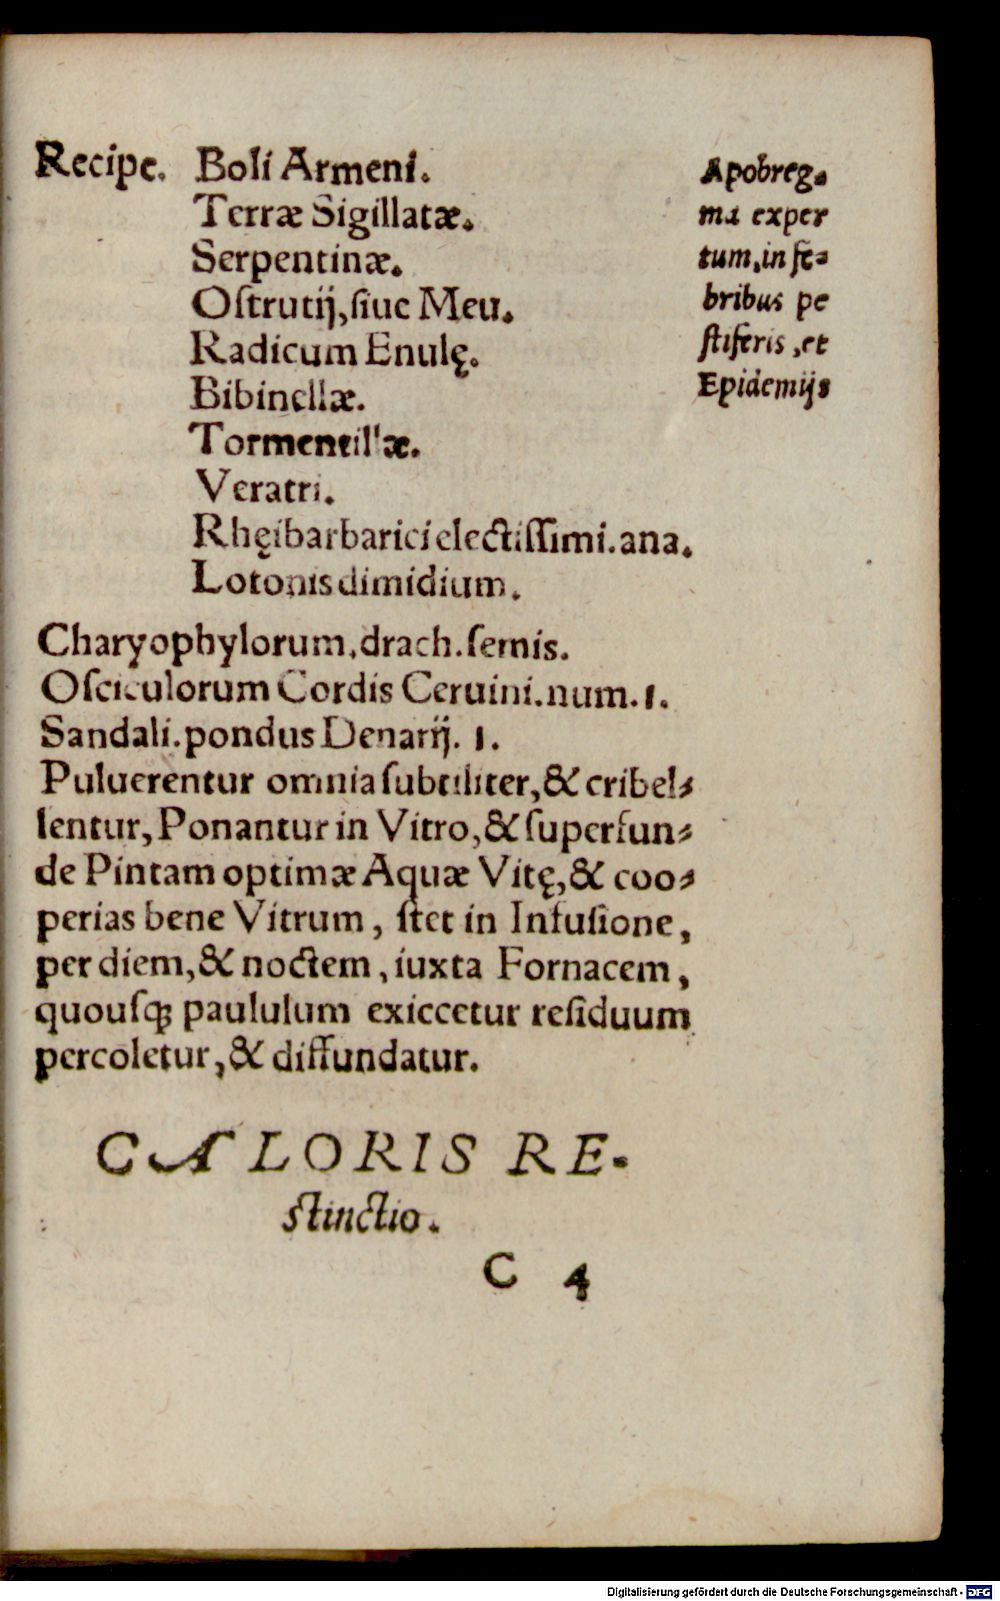 Recipe. Boli Armeni.
Terræ Sigillatæ.
Serpentinæ.
Oſtrutij, ſiue Meu.
Radicum Enulę.
Bibinellæ.
Tormentillæ.
Veratri.
Rhęibarbarici electiſſimi. ana.
Lotonis dimidium.
Apobreg-
ma exper
tum, in fe-
bribus pe
ſtiferis, et
Epidemijs
Charyophylorum, drach. ſemis.
Oſciculorum Cordis Ceruini. num. 1.
Sandali. pondus Denarij. 1.
Puluerentur omnia ſubtiliter, & cribel-
lentur, Ponantur in Vitro, & ſuperfun-
de Pintam optimæ Aquæ Vitę, & coo-
perias bene Vitrum, ſtet in Infuſione,
per diem, & noctem, iuxta Fornacem,
quouſq; paululum exiccetur reſiduum
percoletur, & diffundatur.
CALORIS RE-
ſtinctio.
C 4
Digitalisierung gefördert durch die Deutsche Forschungsgemeinschaft - DFG